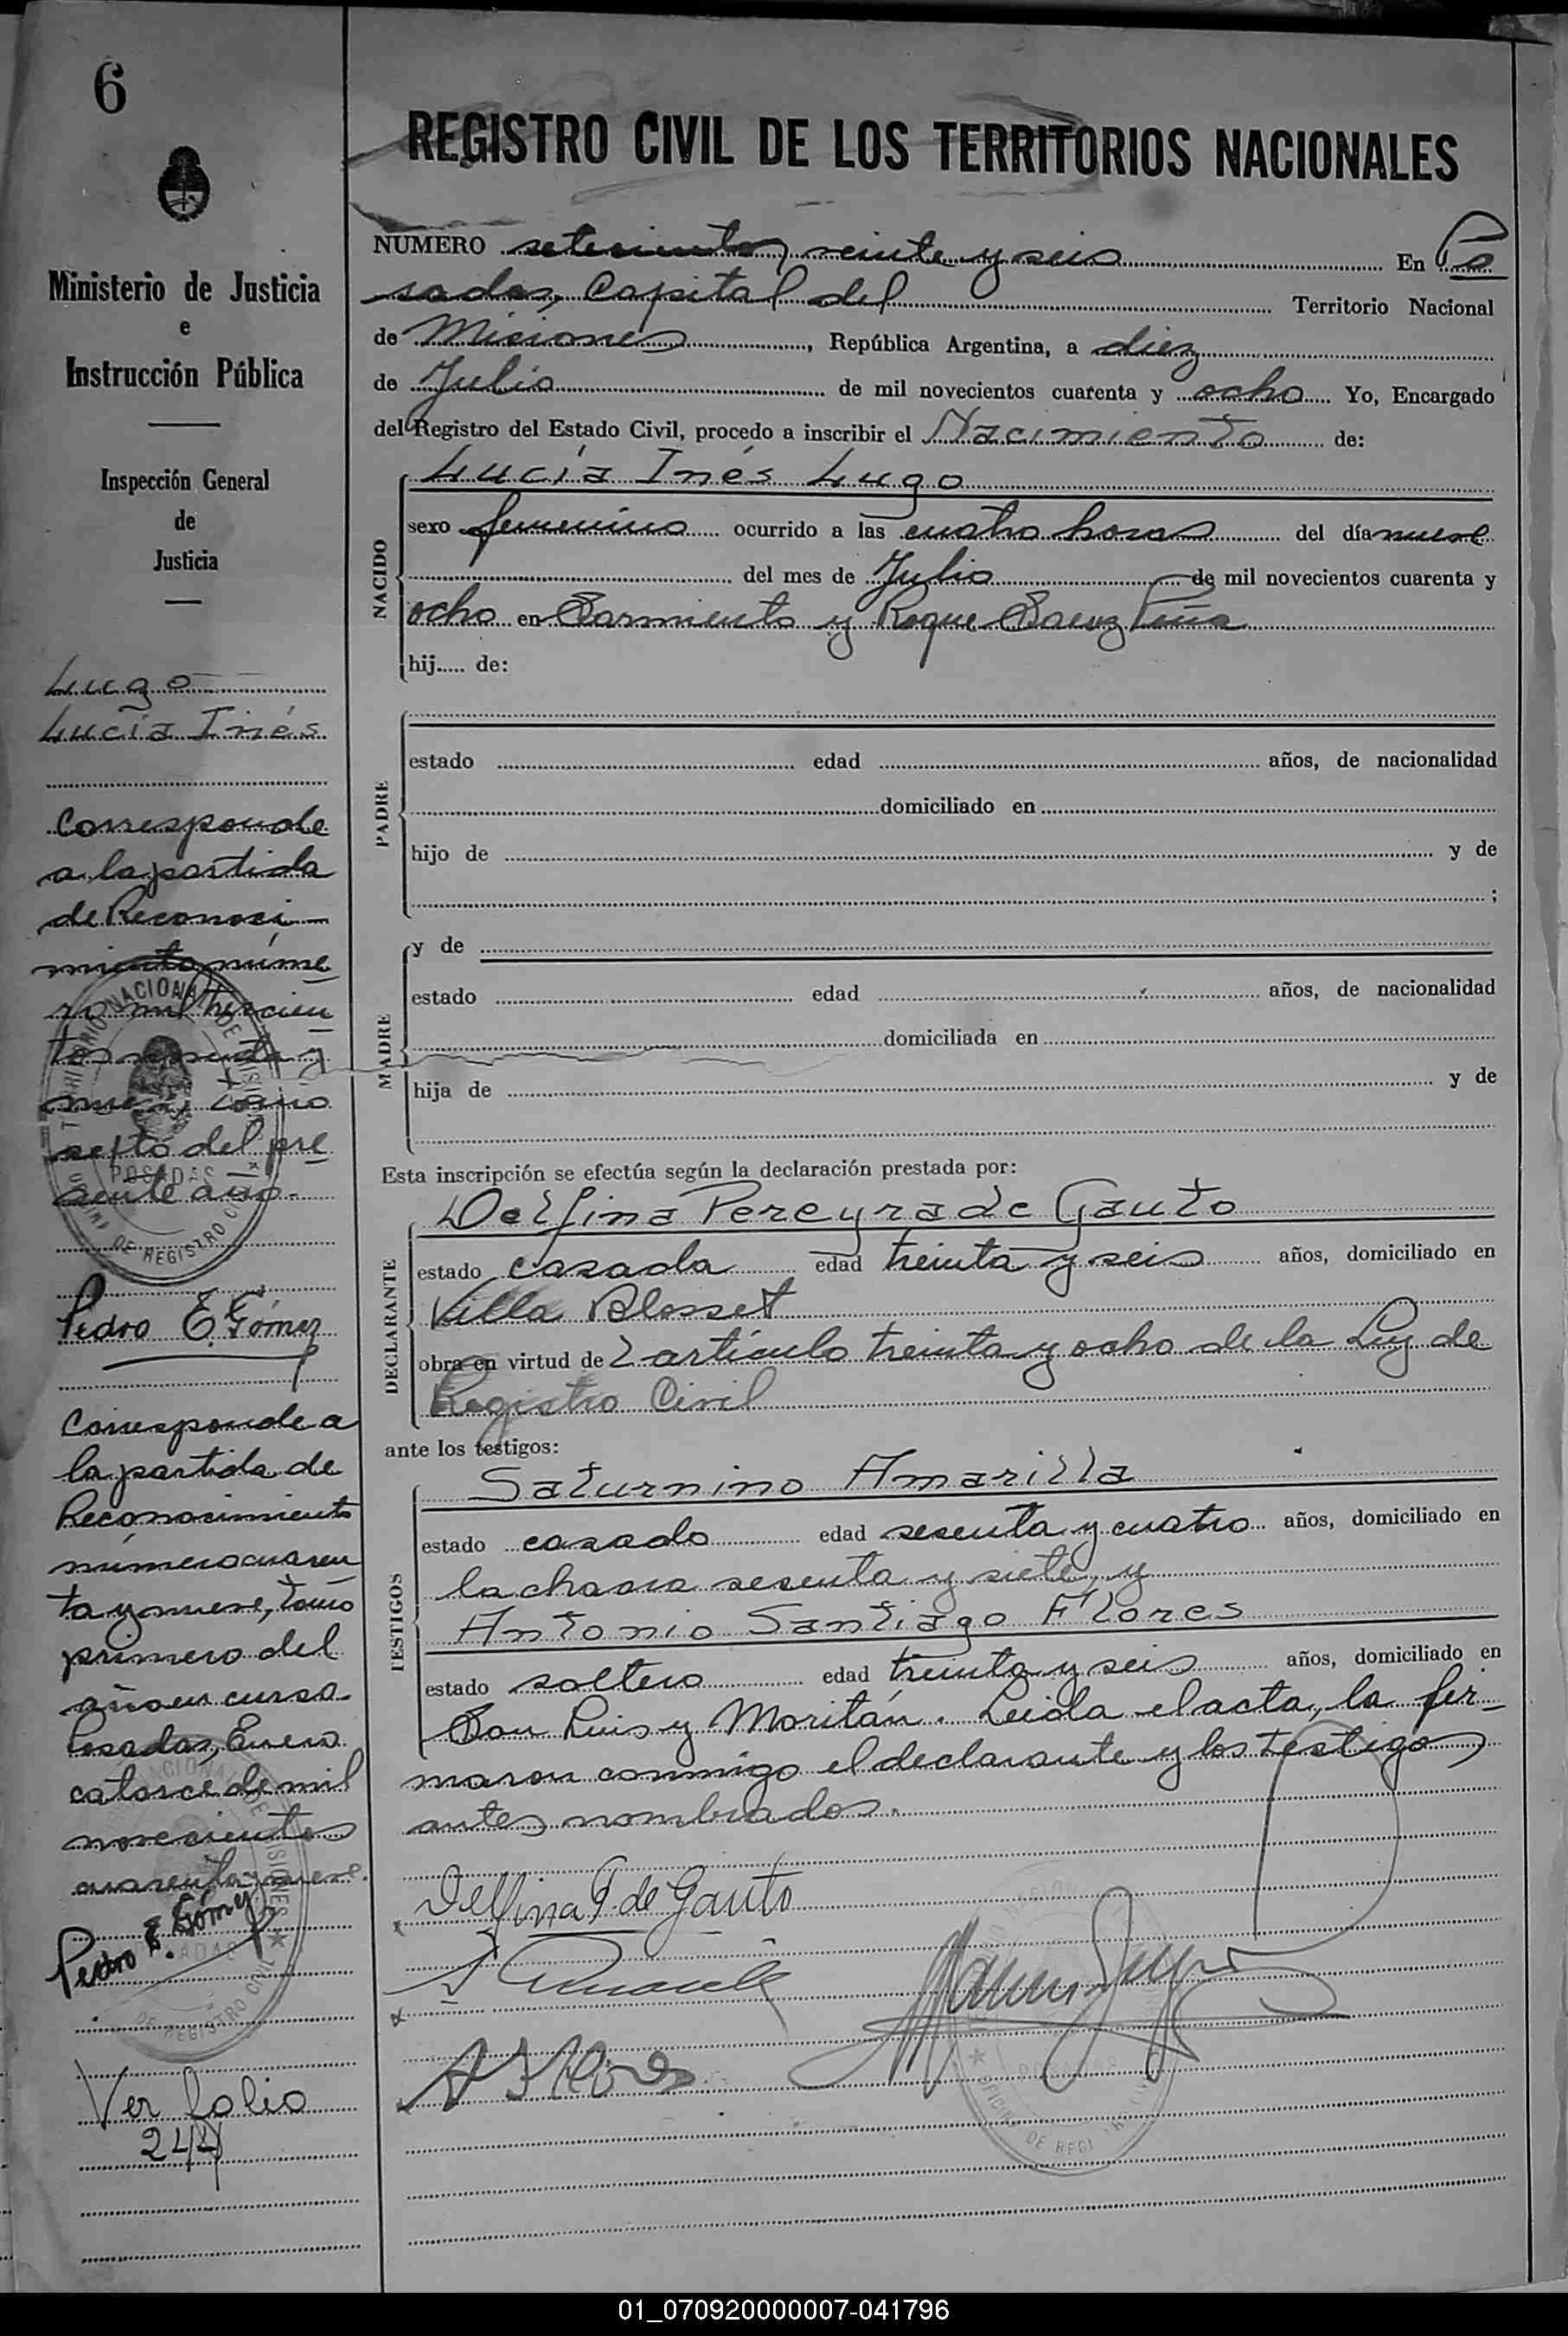 6
Ministerio de Justicia
e
Instrucción Pública
Inspección General
de
Justicia
Lugo
Lucía Inés
Corresponde
a la partida
de Reconoci-
miento núme
ro mil trescien
tos noventa y
nueve, tomo
sexto del pre
sente año.-
TERRITORIO NACIONAL DE MISIONES
POSADAS
OFICINA DE REGISTRO CIVIL
Pedro E. Gómez
Corresponde a
la partida de
Reconocimiento
número cuaren
ta y nueve, tomo
primero del
año en curso.
Posadas, Enero
catorce de mil
novecientos
cuarenta y nueve.
Pedro E. Gómez
Ver folio
244
REGISTRO CIVIL DE LOS TERRITORIOS NACIONALES
NUMERO setecientos veinte y seis En Po
sadas, Capital del Territorio Nacional
de Misiones, República Argentina, a diez
de Julio de mil novecientos cuarenta y ocho Yo, Encargado
del Registro del Estado Civil, procedo a inscribir el Nacimiento de:
NACIDO
Lucía Inés Lugo
sexo femenino ocurrido a las cuatro horas del día nueve
del mes de Julio de mil novecientos cuarenta y
ocho en Sarmiento y Roque Saenz Peña
hij..... de:
PADRE
estado edad años, de nacionalidad
domiciliado en
hijo de y de
;
MADRE
y de
estado edad años, de nacionalidad
domiciliada en
hija de y de
Esta inscripción se efectúa según la declaración prestada por:
DECLARANTE
Delfina Pereyra de Gauto
estado casada edad treinta y seis años, domiciliado en
Villa Blosset
obra en virtud del artículo treinta y ocho de la Ley de
Registro Civil
ante los testigos:
TESTIGOS
Saturnino Amarilla
estado casado edad sesenta y cuatro años, domiciliado en
la chacra sesenta y siete, y
Antonio Santiago Flores
estado soltero edad treinta y seis años, domiciliado en
San Luis y Moritán. Leida el acta, la fir-
maron conmigo el declarante y los testigos
antes nombrados.
Delfina P. de Gauto
A S Flores
01_070920000007-041796